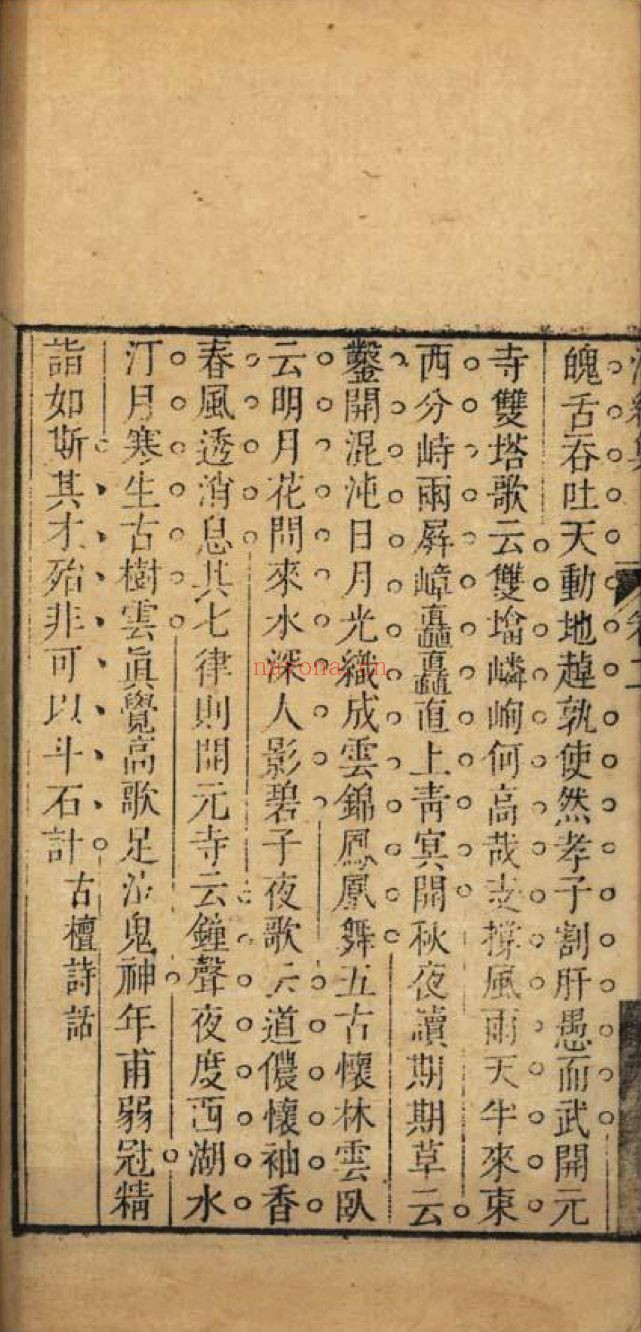 魄舌吞吐天動地趠孰使然孝子割肝愚而武開元
寺雙塔歌云雙墖嶙峋何高哉支撐風雨天半來東
西分峙兩屏嶂矗矗直上靑冥開秋夜讀期期草云
鑿開混沌日月光織成雲錦鳳凰舞五古懷林雲臥
云明月花間來水深人影碧子夜歌云道儂懷袖香
春風透消息其七律則開元寺云鐘聲夜度西湖水
汀月寒生古樹雲眞覺高歌足泣鬼神年甫弱冠精
詣如斯其才殆非可以斗石計古檀詩話
卷二
nrfona.cn